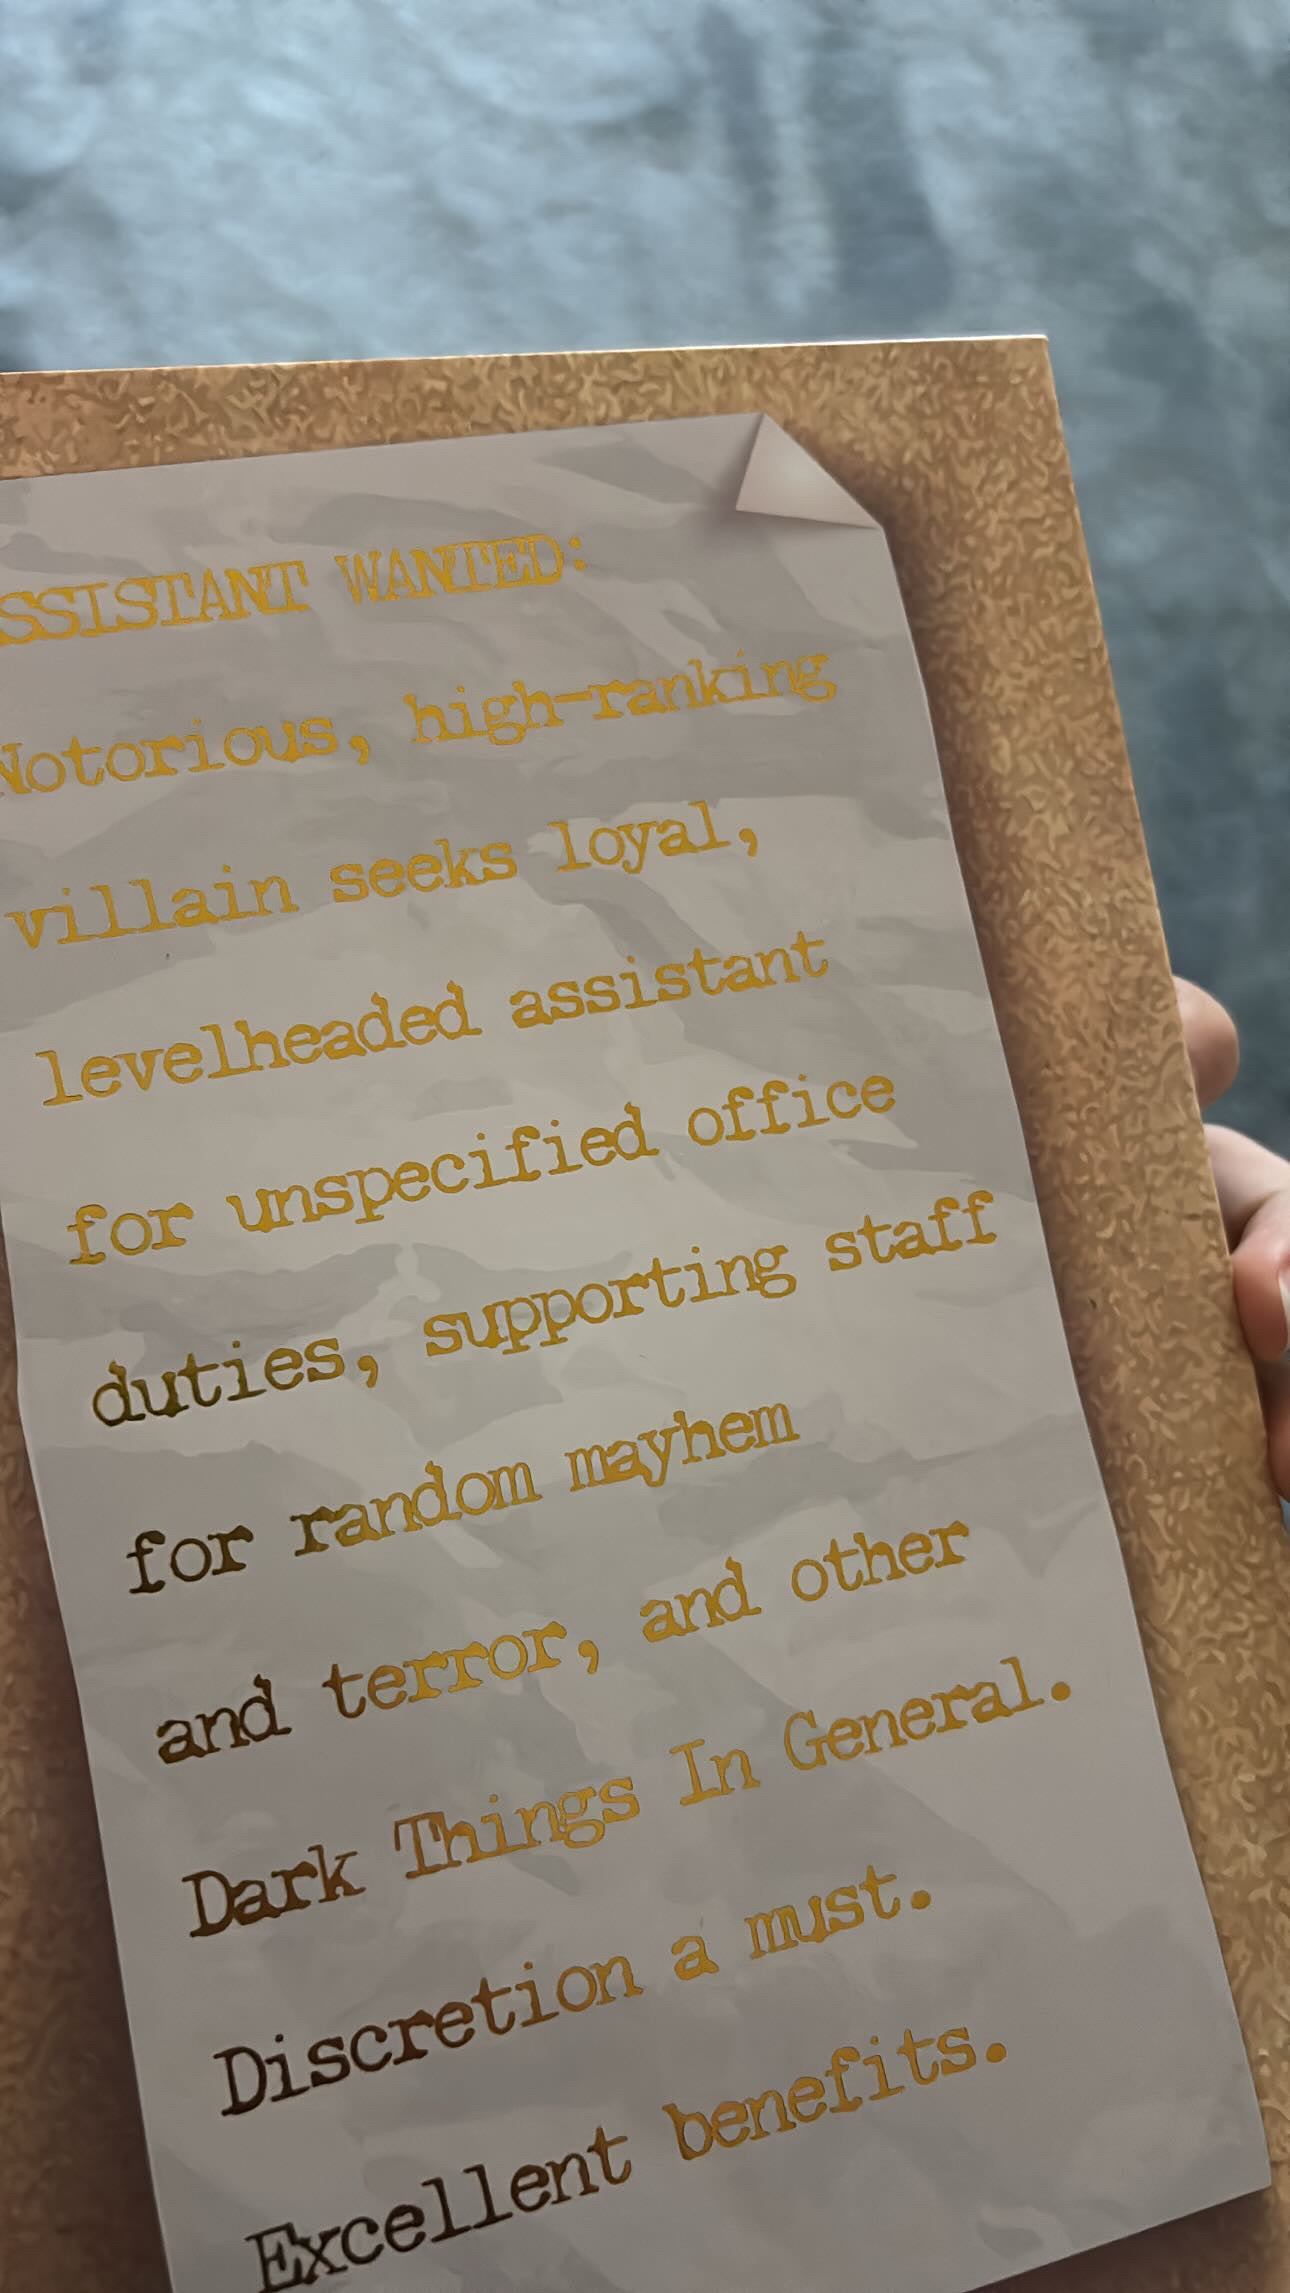 ASSISTANT WANTED:
Notorious, high-ranking
villain seeks loyal,
levelheaded assistant
for unspecified office
duties, supporting staff
for random mayhem
and terror, and other
Dark Things In General.
Discretion a must.
Excellent benefits.